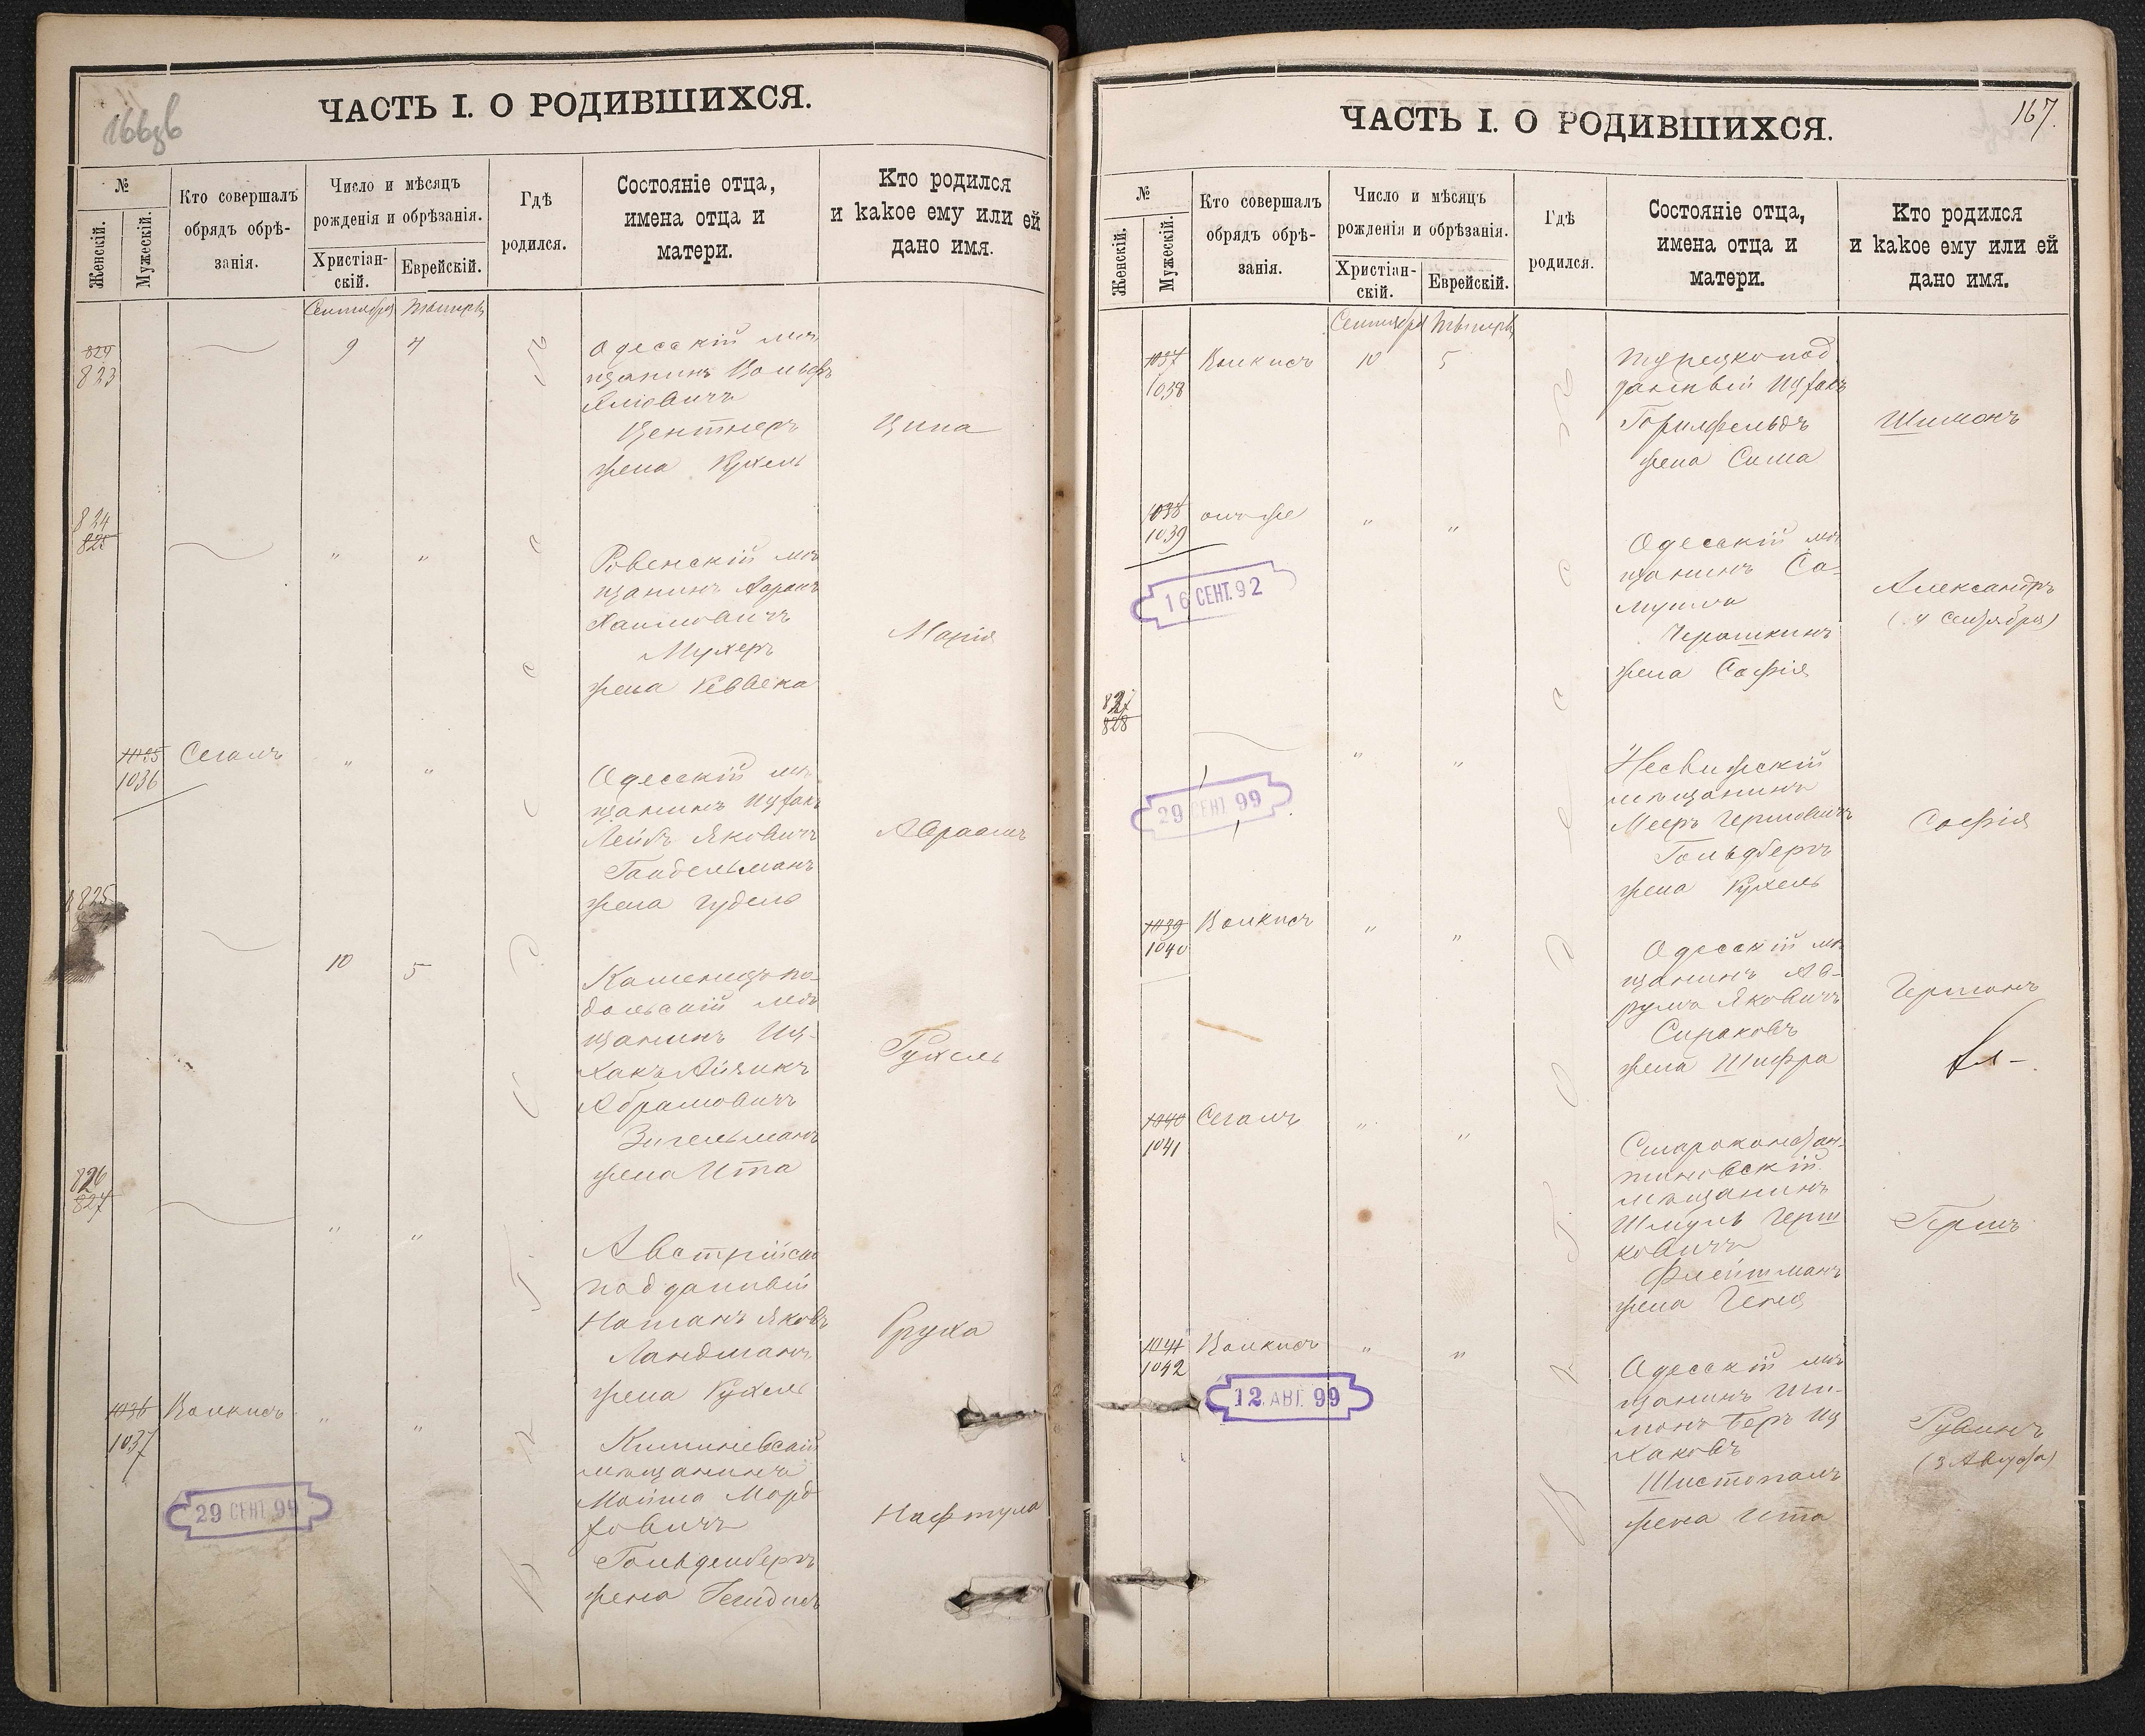 166зв
ЧАСТЬ I. О РОДИВШИХСЯ.
№
Женскій.
Мужескій.
Кто совершалъ
обрядъ обрѣ-
занія.
Число и мѣсяцъ
рожденія и обрѣзанія.
Христіан-
скій.
Еврейскій.
Гдѣ
родился.
Состояніе отца,
имена отца и
матери.
Кто родился
и какое ему или ей
дано имя.
Сентября Тышри
823
9 4
Одесскій мѣ
щанинъ Вольфъ
Центнеръ
жена Рухель
Ципа
824
825
" "
Ровенскій мѣ
щанинъ
Хаимовичъ
Мухеръ
жена Ревека
Марія
1035
1036
Сегалъ
" "
Одесскій мѣ
щанинъ Ицхакъ
Лейбъ Яковичъ
Гандельманъ
жена Гудель
Авраамъ
825
10 5
Каменецъ по-
дольскій мѣ
щанинъ Иц-
хакъ Айзикъ
Абрамовичъ
Зигельманъ
жена Ита
Рухель
826
827
" "
Австрійско
подданный
Натанъ Яковъ
Ландманъ
жена Рухель
Бруха
1036
1037
Волкисъ
" "
Кишиневскій
мѣщанинъ
Мойша Морд
ковичъ
Гольденбергъ
жена
Нафтула
29 СЕНТ. 99
167.
ЧАСТЬ I. О РОДИВШИХСЯ.
№
Женскій.
Мужескій.
Кто совершалъ
обрядъ обрѣ-
занія.
Число и мѣсяцъ
рожденія и обрѣзанія.
Христіан-
скій.
Еврейскій.
Гдѣ
родился.
Состояніе отца,
имена отца и
матери.
Кто родился
и какое ему или ей
дано имя.
Сентября Тышри
1037
1038
Волкисъ
10 5
Турецкопод
данный Ицхакъ
Горнфельдъ
жена Сима
Шимонъ
1038
1039
онъ же
" "
Одесскій мѣ
щанинъ Са-
муилъ
Черашкинъ
жена Софія
Александръ
(4 Сентября)
16 СЕНТ. 92
827
828
" "
Несвижскій
мѣщанинъ
Мееръ Гершовичъ
Гольдбергъ
жена Рухель
Софія
29 СЕНТ. 99
1039
1040
Волкисъ
" "
Одесскій мѣ
щанинъ Ав-
румъ Яковичъ
Сираковъ
жена Шифра
Германъ
1040
1041
Сегалъ
" "
Староконстан-
тиновскій
мѣщанинъ
Шмуль Герш
ковичъ
Флейтманъ
жена Геня
Гершъ
1041
1042
Волкисъ
" "
Одесскій мѣ
щанинъ Ши-
монъ Беръ Иц
хаковъ
Шистопалъ
жена Ита
Рувинъ
(3 Августа)
12. АВГ. 99